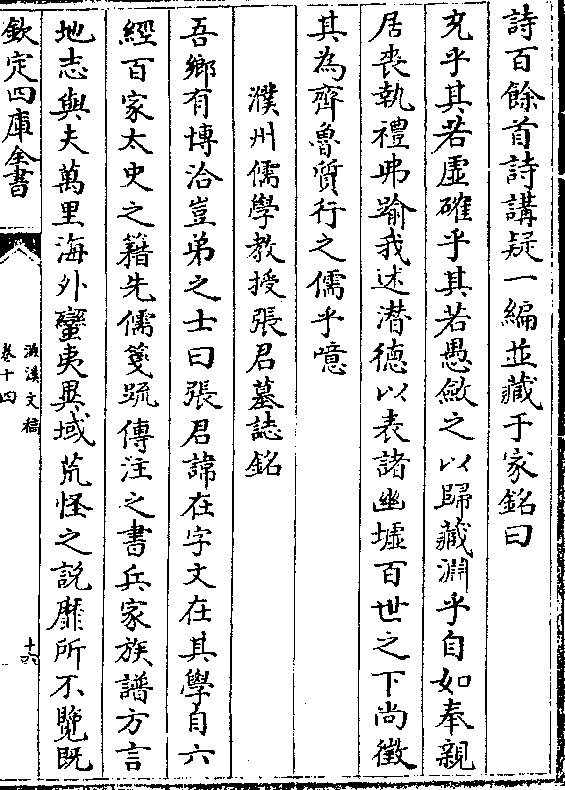 詩百餘首詩講疑一編並藏于家銘曰
充乎其若虛確乎其若愚斂之以歸藏淵乎自如奉親
居喪執禮弗踰我述潛德以表諸幽墟百世之下尚徵
其為齊魯質行之儒乎噫
濮州儒學教授張君墓誌銘
吾鄉有博洽豈弟之士曰張君諱在字文在其學自六
經百家太史之籍先儒箋䟽傳注之書兵家族譜方言
地志與夫萬里海外蠻夷異域荒怪之說靡所不覽既
欽定四庫全書
滋溪文稿
卷十四
十六